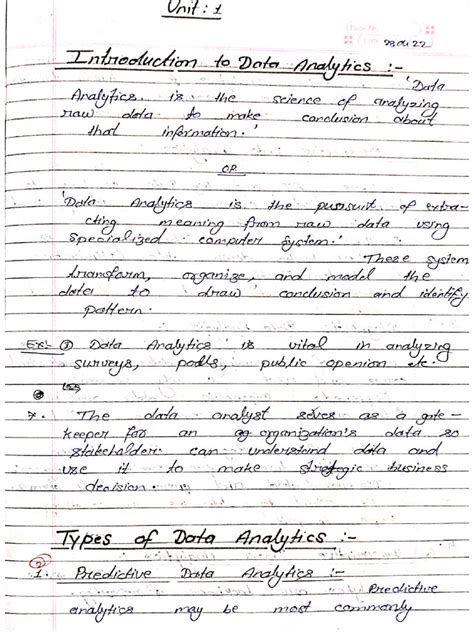 Unit : 1
Introduction to Data Analytics :-
'Data
Analytics is the science of analyzing
raw data to make conclusion about
that information.'
OR
'Data Analytics is the pursuit of extra-
cting meaning from raw data using
specialized computer system.'
These system
transform, organize, and model the
data to draw conclusion and identify
pattern.
Ex:- Data Analytics is vital in analyzing
surveys, polls, public openion etc.
*. The data analyst serves as a gate-
keeper for an organization's data so
stakeholder can understand data and
use it to make strategic business
decision.
Types of Data Analytics :-
1. Predictive Data Analytics :-
Predictive
analytics may be most commonly